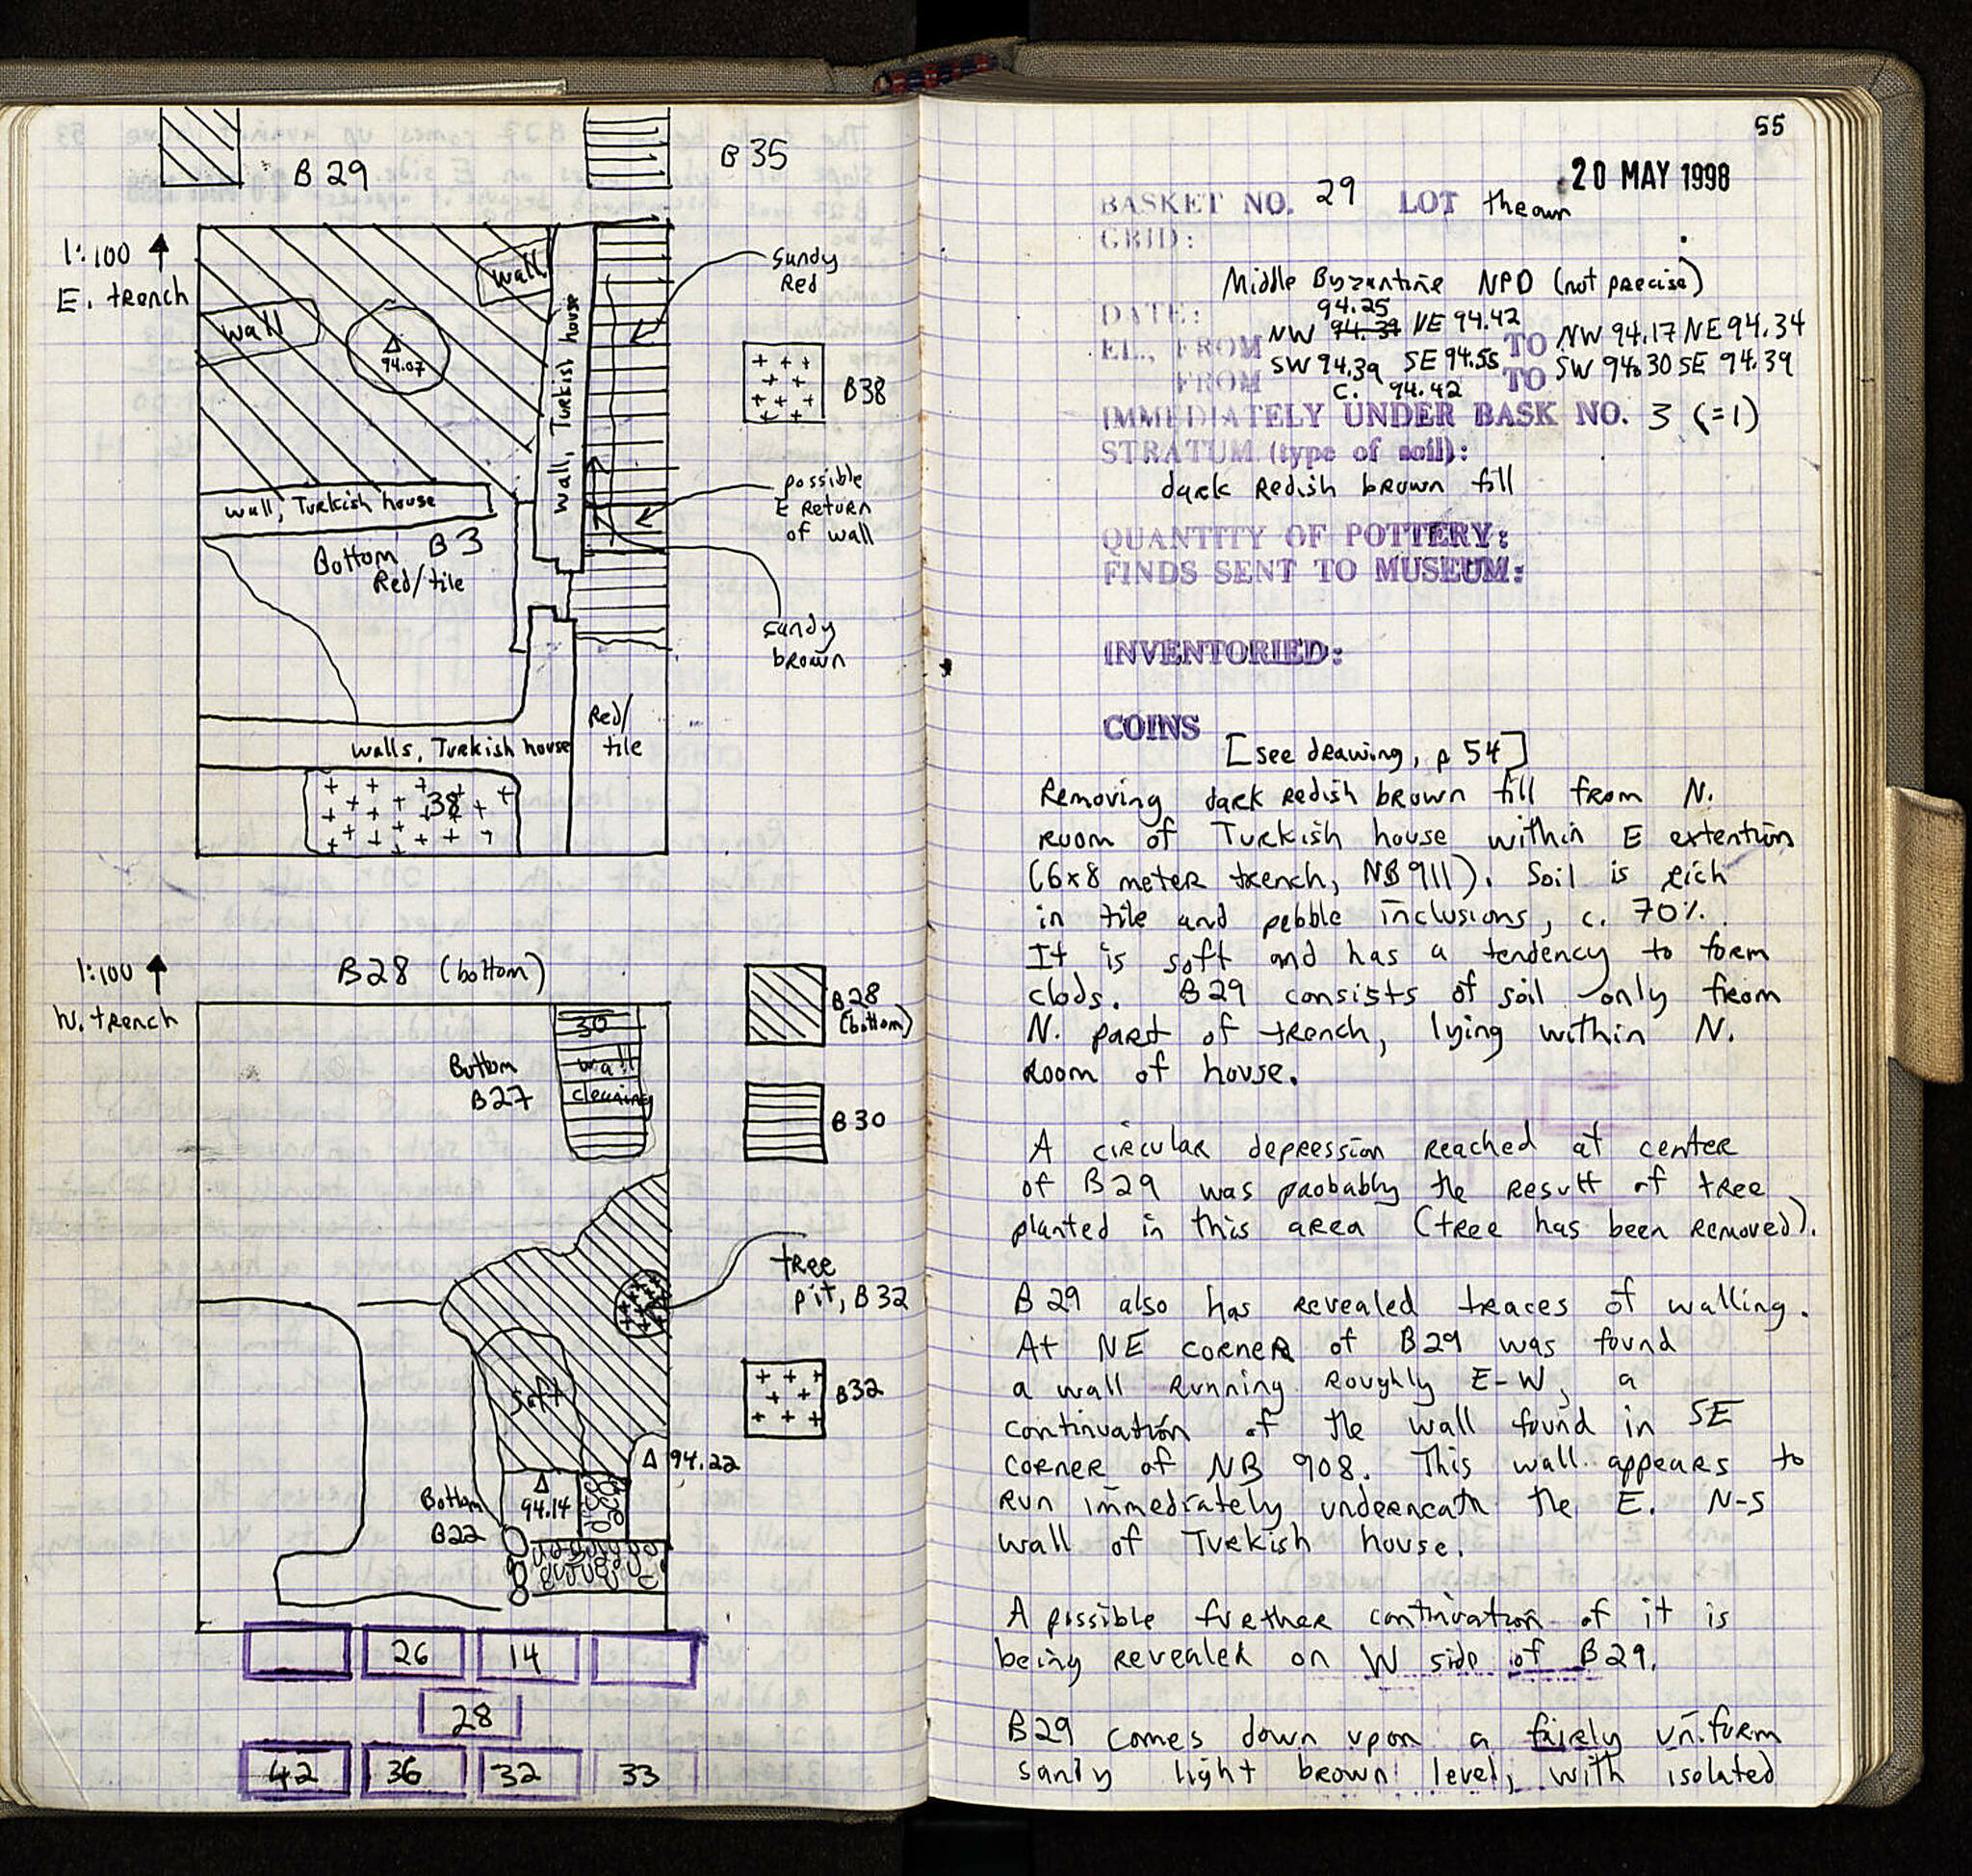 B 29
B 35
1:100
E. trench
wall
wall
94.07
wall, Turkish house
Sundy
Red
B38
wall, Turkish house
possible
E Return
of wall
Bottom B3
Red/tile
sandy
brown
Red/
tile
walls, Turkish house
38
1:100
W. trench
B28 (bottom)
B28
(bottom)
30
wall
cleaning
Bottom
B27
B30
tree
pit, B32
soft
B32
94.22
94.14
Bottom
B22
26 14
28
42 36 32 33
55
20 MAY 1998
BASKET NO. 29 LOT thrown
GRID:
Middle Byzantine NPD (not precise)
94.25
DATE:
NW 94.39 NE 94.42
EL., FROM TO NW 94.17 NE 94.34
SW 94.39 SE 94.55 SW 94.30 SE 94.39
FROM C. 94.42 TO
IMMEDIATELY UNDER BASK NO. 3 (=1)
STRATUM (type of soil):
dark Redish brown fill
QUANTITY OF POTTERY:
FINDS SENT TO MUSEUM:
INVENTORIED:
COINS
[see drawing, p 54]
Removing dark redish brown fill from N.
room of Turkish house within E extention
(6x8 meter trench, NB 911). Soil is rich
in tile and pebble inclusions, c. 70%.
It is soft and has a tendency to form
clods. B29 consists of soil only from
N. part of trench, lying within N.
Room of house.
A circular depression reached at center
of B29 was probably the result of tree
planted in this area (tree has been removed).
B29 also has revealed traces of walling.
At NE corner of B29 was found
a wall running roughly E-W, a
continuation of the wall found in SE
corner of NB 908. This wall appears to
run immediately underneath the E. N-S
wall of Turkish house.
A possible further continuation of it is
being revealed on W side of B29.
B29 comes down upon a fairly uniform
sandy light brown level, with isolated